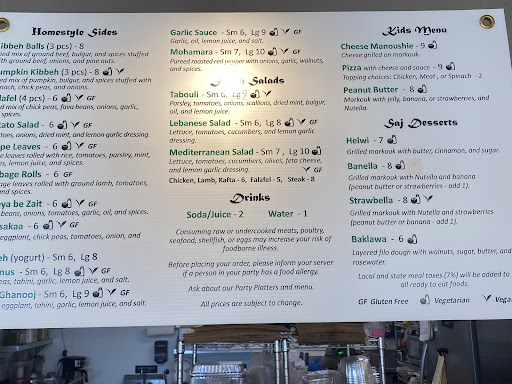 Homestyle Sides
ibbeh Balls (3 pcs) - 8
ied mix of ground beef, bulgur, and spices stuffed
ith ground beef, onions, and pine nuts.
umpkin Kibbeh (3 pcs) - 8
ied mix of pumpkin, bulgur, and spices stuffed with
nach, chick peas, and onions.
lafel (4 pcs) - 6 GF
ied mix of chick peas, fava beans, onions, garlic,
spices.
tato Salad - 6 GF
toes, onions, dried mint, and lemon garlic dressing.
pe Leaves - 6 GF
e leaves rolled with rice, tomatoes, parsley, mint,
es, lemon juice, and spices.
bage Rolls - 6 GF
age leaves rolled with ground lamb, tomatoes,
and spices.
eya be Zait - 6 GF
beans, onions, tomatoes, garlic, oil, and spices.
sakaa - 6 GF
eggplant, chick peas, tomatoes, onion, and
eh (yogurt) - Sm 6, Lg 8
mus - Sm 6, Lg 8 GF
eas, tahini, garlic, lemon juice, and salt.
Ghanooj - Sm 6, Lg 9 GF
eggplant, tahini, garlic, lemon juice, and salt.
Garlic Sauce - Sm 6, Lg 9 GF
Garlic, oil, lemon juice, and salt.
Mohamara - Sm 7, Lg 10 GF
Pureed roasted red pepper with onions, garlic, walnuts,
and spices.
Salads
Tabouli - Sm 6, Lg 9
Parsley, tomatoes, onions, scallions, dried mint, bulgur,
oil, and lemon juice.
Lebanese Salad - Sm 6, Lg 8 GF
Lettuce, tomatoes, cucumbers, and lemon garlic
dressing.
Mediterranean Salad - Sm 7, Lg 10
Lettuce, tomatoes, cucumbers, olives, feta cheese,
and lemon garlic dressing. GF
Chicken, Lamb, Kafta - 6, Falafel - 5, Steak - 8
Drinks
Soda/Juice - 2 Water - 1
Consuming raw or undercooked meats, poultry,
seafood, shellfish, or eggs may increase your risk of
foodborne illness.
Before placing your order, please inform your server
if a person in your party has a food allergy.
Ask about our Party Platters and menu.
All prices are subject to change.
Kids Menu
Cheese Manoushie - 9
Cheese grilled on markouk.
Pizza with cheese and sauce - 9
Topping choices: Chicken, Meat, or Spinach - 2
Peanut Butter - 8
Markouk with jelly, banana, or strawberries, and
Nutella.
Saj Desserts
Helwi - 7
Grilled markouk with butter, cinnamon, and sugar.
Banella - 8
Grilled markouk with Nutella and banana
(peanut butter or strawberries - add 1).
Strawbella - 8
Grilled markouk with Nutella and strawberries
(peanut butter or banana - add 1).
Baklawa - 6
Layered filo dough with walnuts, sugar, butter, and
rosewater.
Local and state meal taxes (7%) will be added to
all ready to eat foods.
GF Gluten Free Vegetarian Vegan